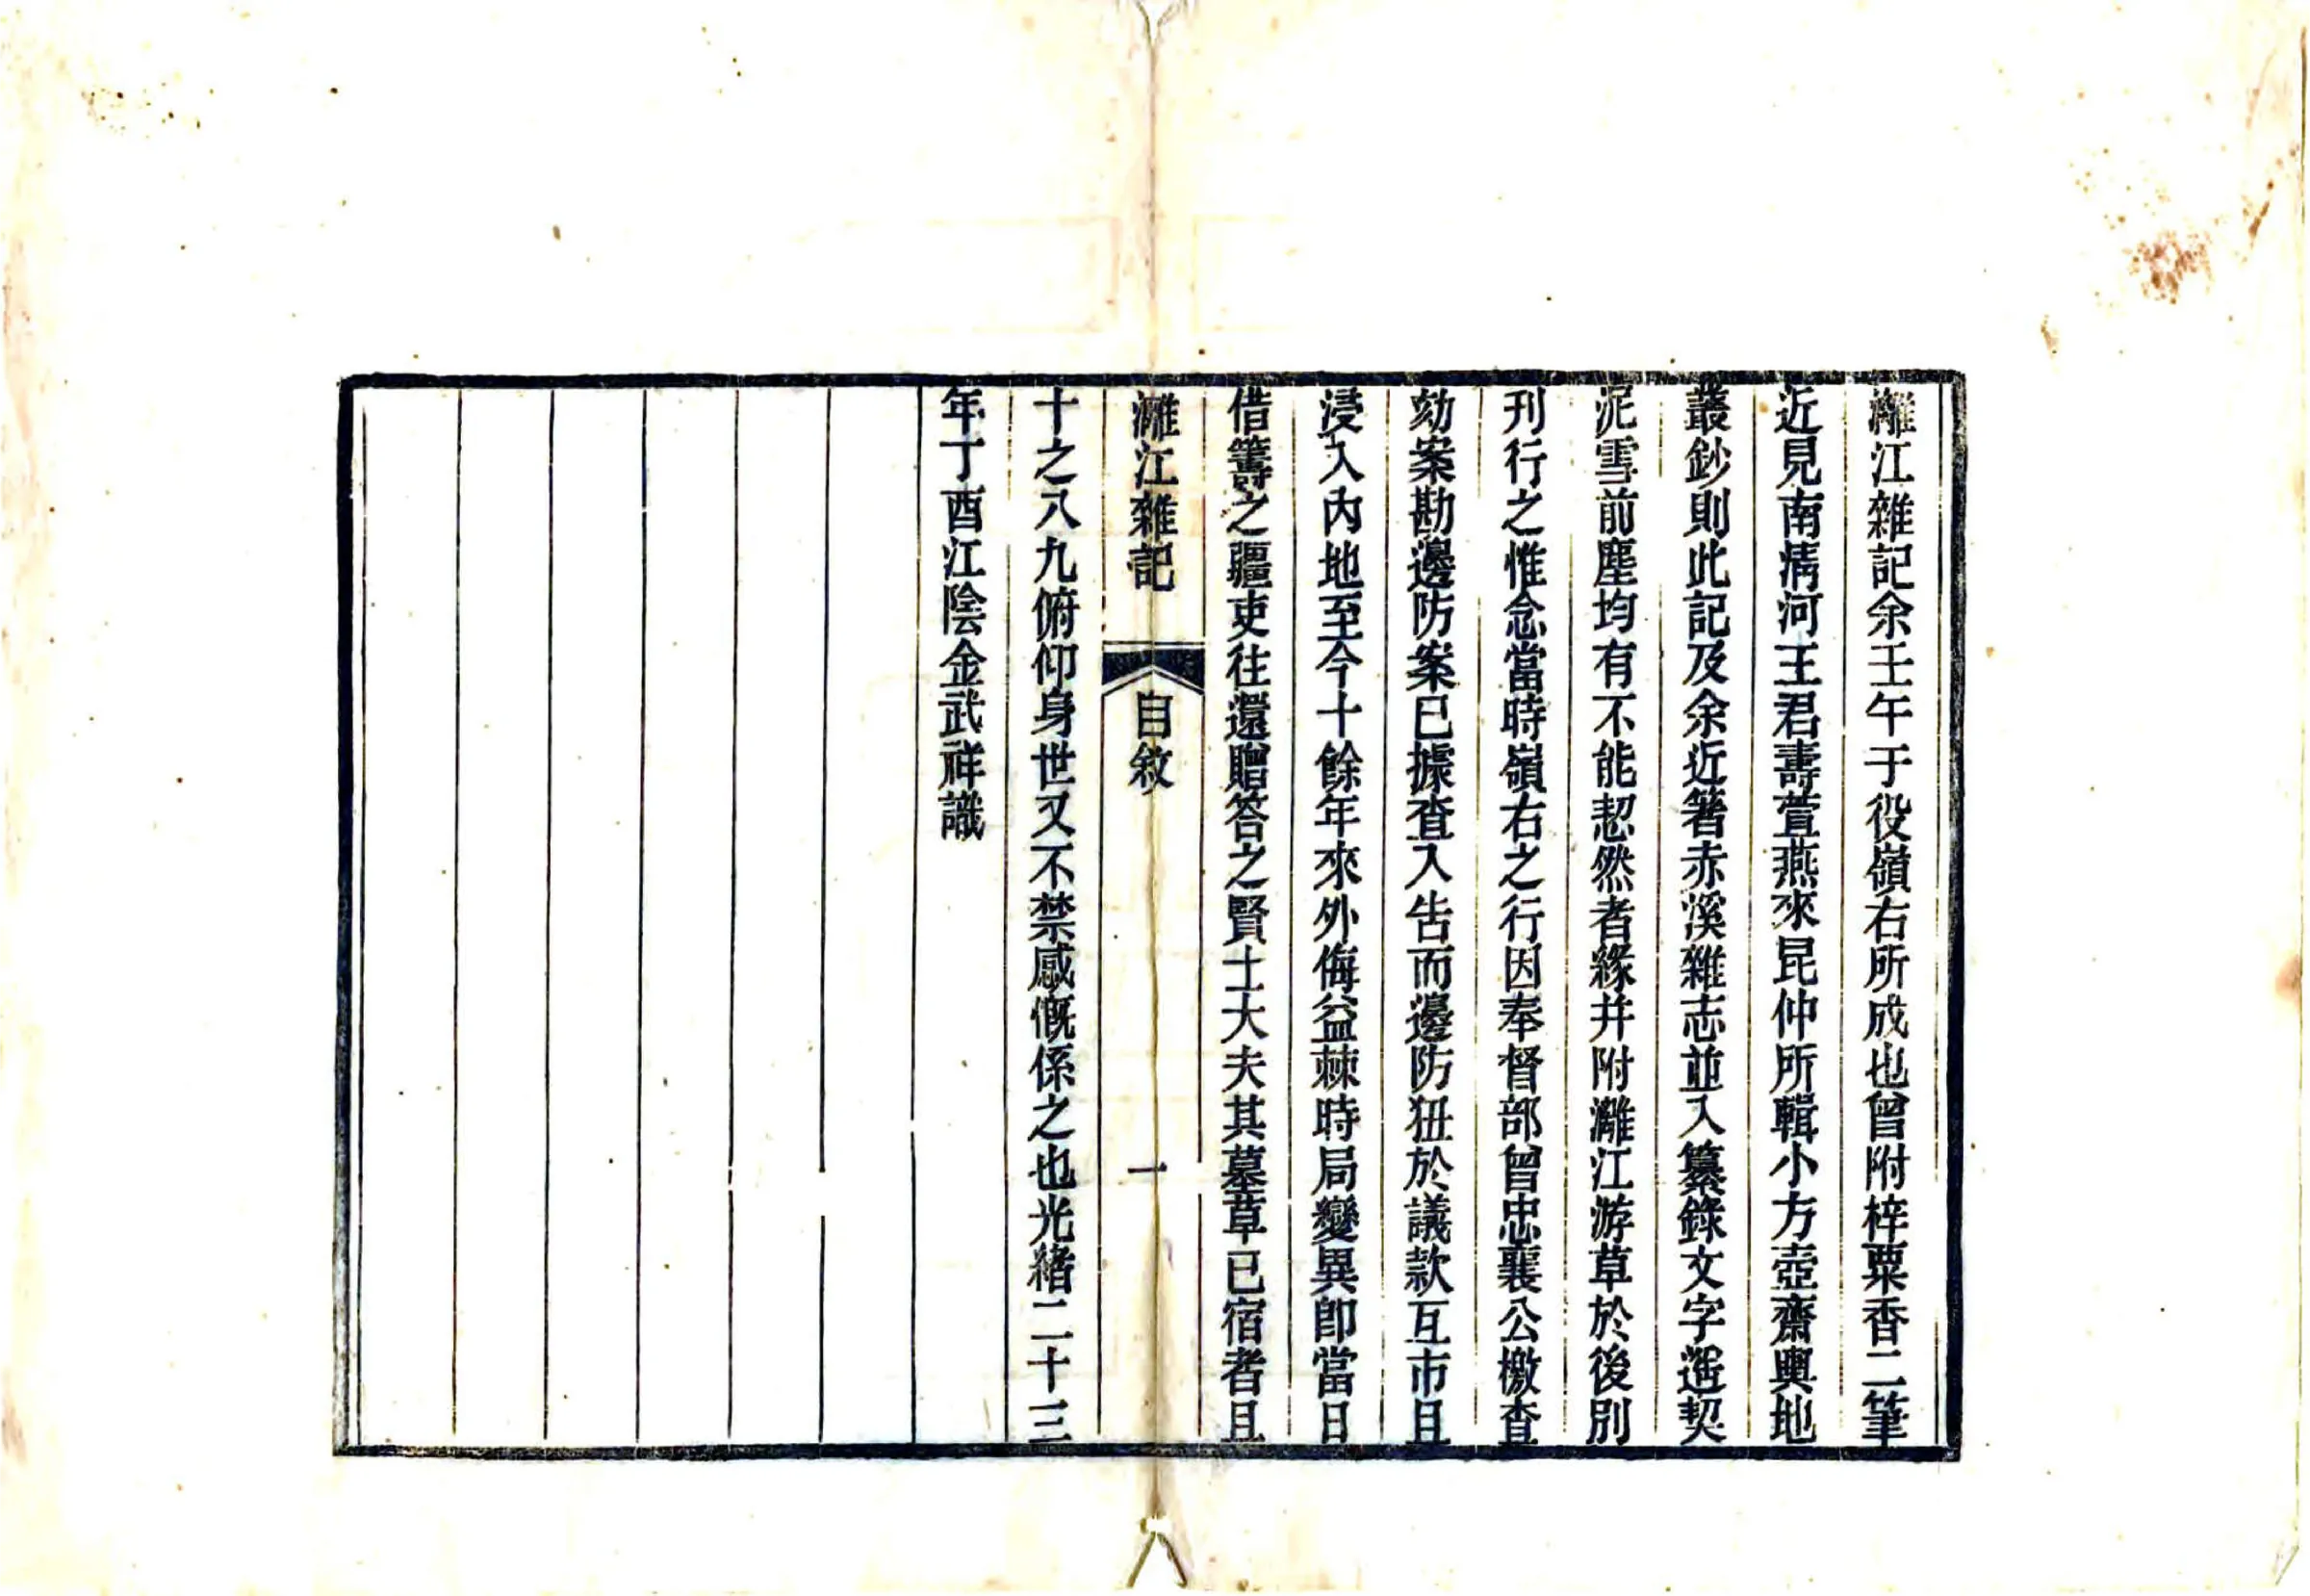 灕江雜記余壬午于役嶺右所成也曾附梓粟香二筆
近見南淸河王君壽萱燕來昆仲所輯小方壺齋輿地
叢鈔則此記及余近箸赤溪雜志並入纂錄文字遙契
泥雪前塵均有不能恝然者緣幷附灕江游草於後別
刊行之惟念當時嶺右之行因奉督部曾忠襄公檄查
劾案勘邊防案已據查入告而邊防狃於議款互市且
浸入內地至今十餘年來外侮益棘時局變異卽當日
借籌之疆吏往還贈答之賢士大夫其墓草已宿者且
灕江雜記 自敘 一
十之八九俯仰身世又不禁感慨係之也光緒二十三
年丁酉江陰金武祥識